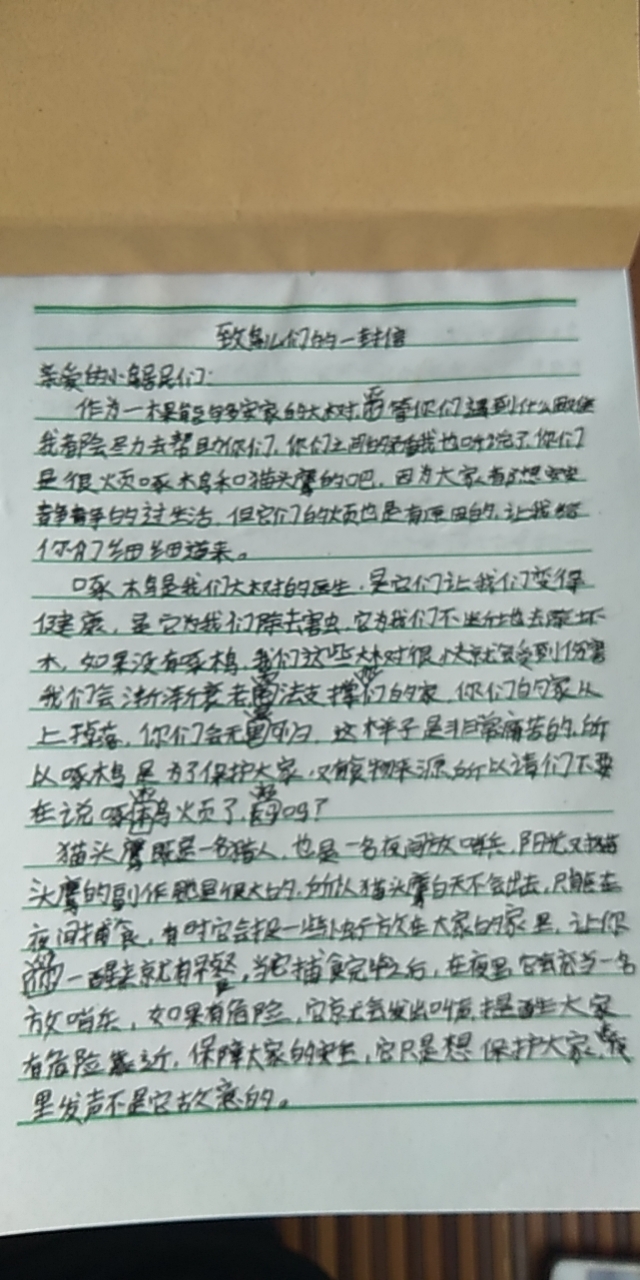 致鸟儿们的一封信
亲爱的小鸟居民们:
作为一棵能与多安家的大树,不管你们遇到什么困难
我都会尽力去帮助你们,你们之间的矛盾我也听说了,你们
是很烦啄木鸟和猫头鹰的吧,因为大家都想安安
静静的过生活,但它们的烦也是有原因的,让我给
你们细细道来。
啄木鸟是我们大树的医生,是它们让我们变得
健康,是它为我们除去害虫,它为我们不断地去除坏
木,如果没有啄木鸟,我们这些大树很快就会受到伤害
我们会渐渐衰老无法支撑你们的家,你们的家从
上掉落,你们会无家可归,这样子是非常痛苦的,所
以啄木鸟是为了保护大家,又有食物来源,所以请们不要
在说啄木鸟烦了,好吗?
猫头鹰既是一名猎人,也是一名夜间放哨兵,阳光对猫
头鹰的副作用是很大的,所以猫头鹰白天不会出去,只能在
夜间捕食,有时它会投一些虫子放在大家的家里,让你
们一醒来就有早餐,当它捕食完毕之后,在夜里它会充当一名
放哨兵,如果有危险,它就会发出叫声,提醒大家
有危险靠近,保障大家的安全,它只是想保护大家,夜
里发声不是它故意的。